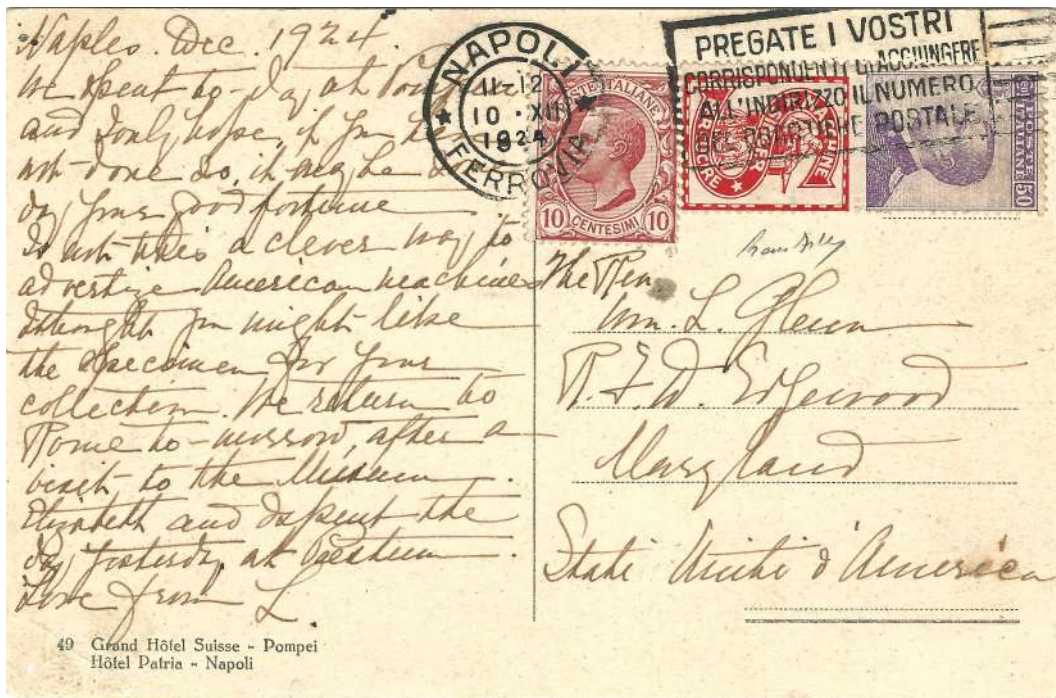 Naples. Dec. 1924.
We spent to-day at
and I only hope, if you
not done so, it may be
day your good fortune
Is not this a clever way to
advertize American machines
I thought you might like
the specimen for your
collection. We return to
Rome to-morrow, after a
visit to the Museum.
Elizabeth and I spent the
day yesterday at Paestum.
Love from L
49 Grand Hôtel Suisse - Pompei
Hôtel Patria - Napoli
NAPOLI
11-12
10 · XII
1924
FERROVIA
PREGATE I VOSTRI
CORRISPONDENTI D'AGGIUNGERE
ALL'INDIRIZZO IL NUMERO
POSTALE
POSTE ITALIANE
10 CENTESIMI 10
SINGER
MACCHINE
CUCIRE
POSTE
ITALIANE
50
The Rev.
Wm. L. Glenn
R.F.D. Edgewood
Maryland
Stati Uniti d'America